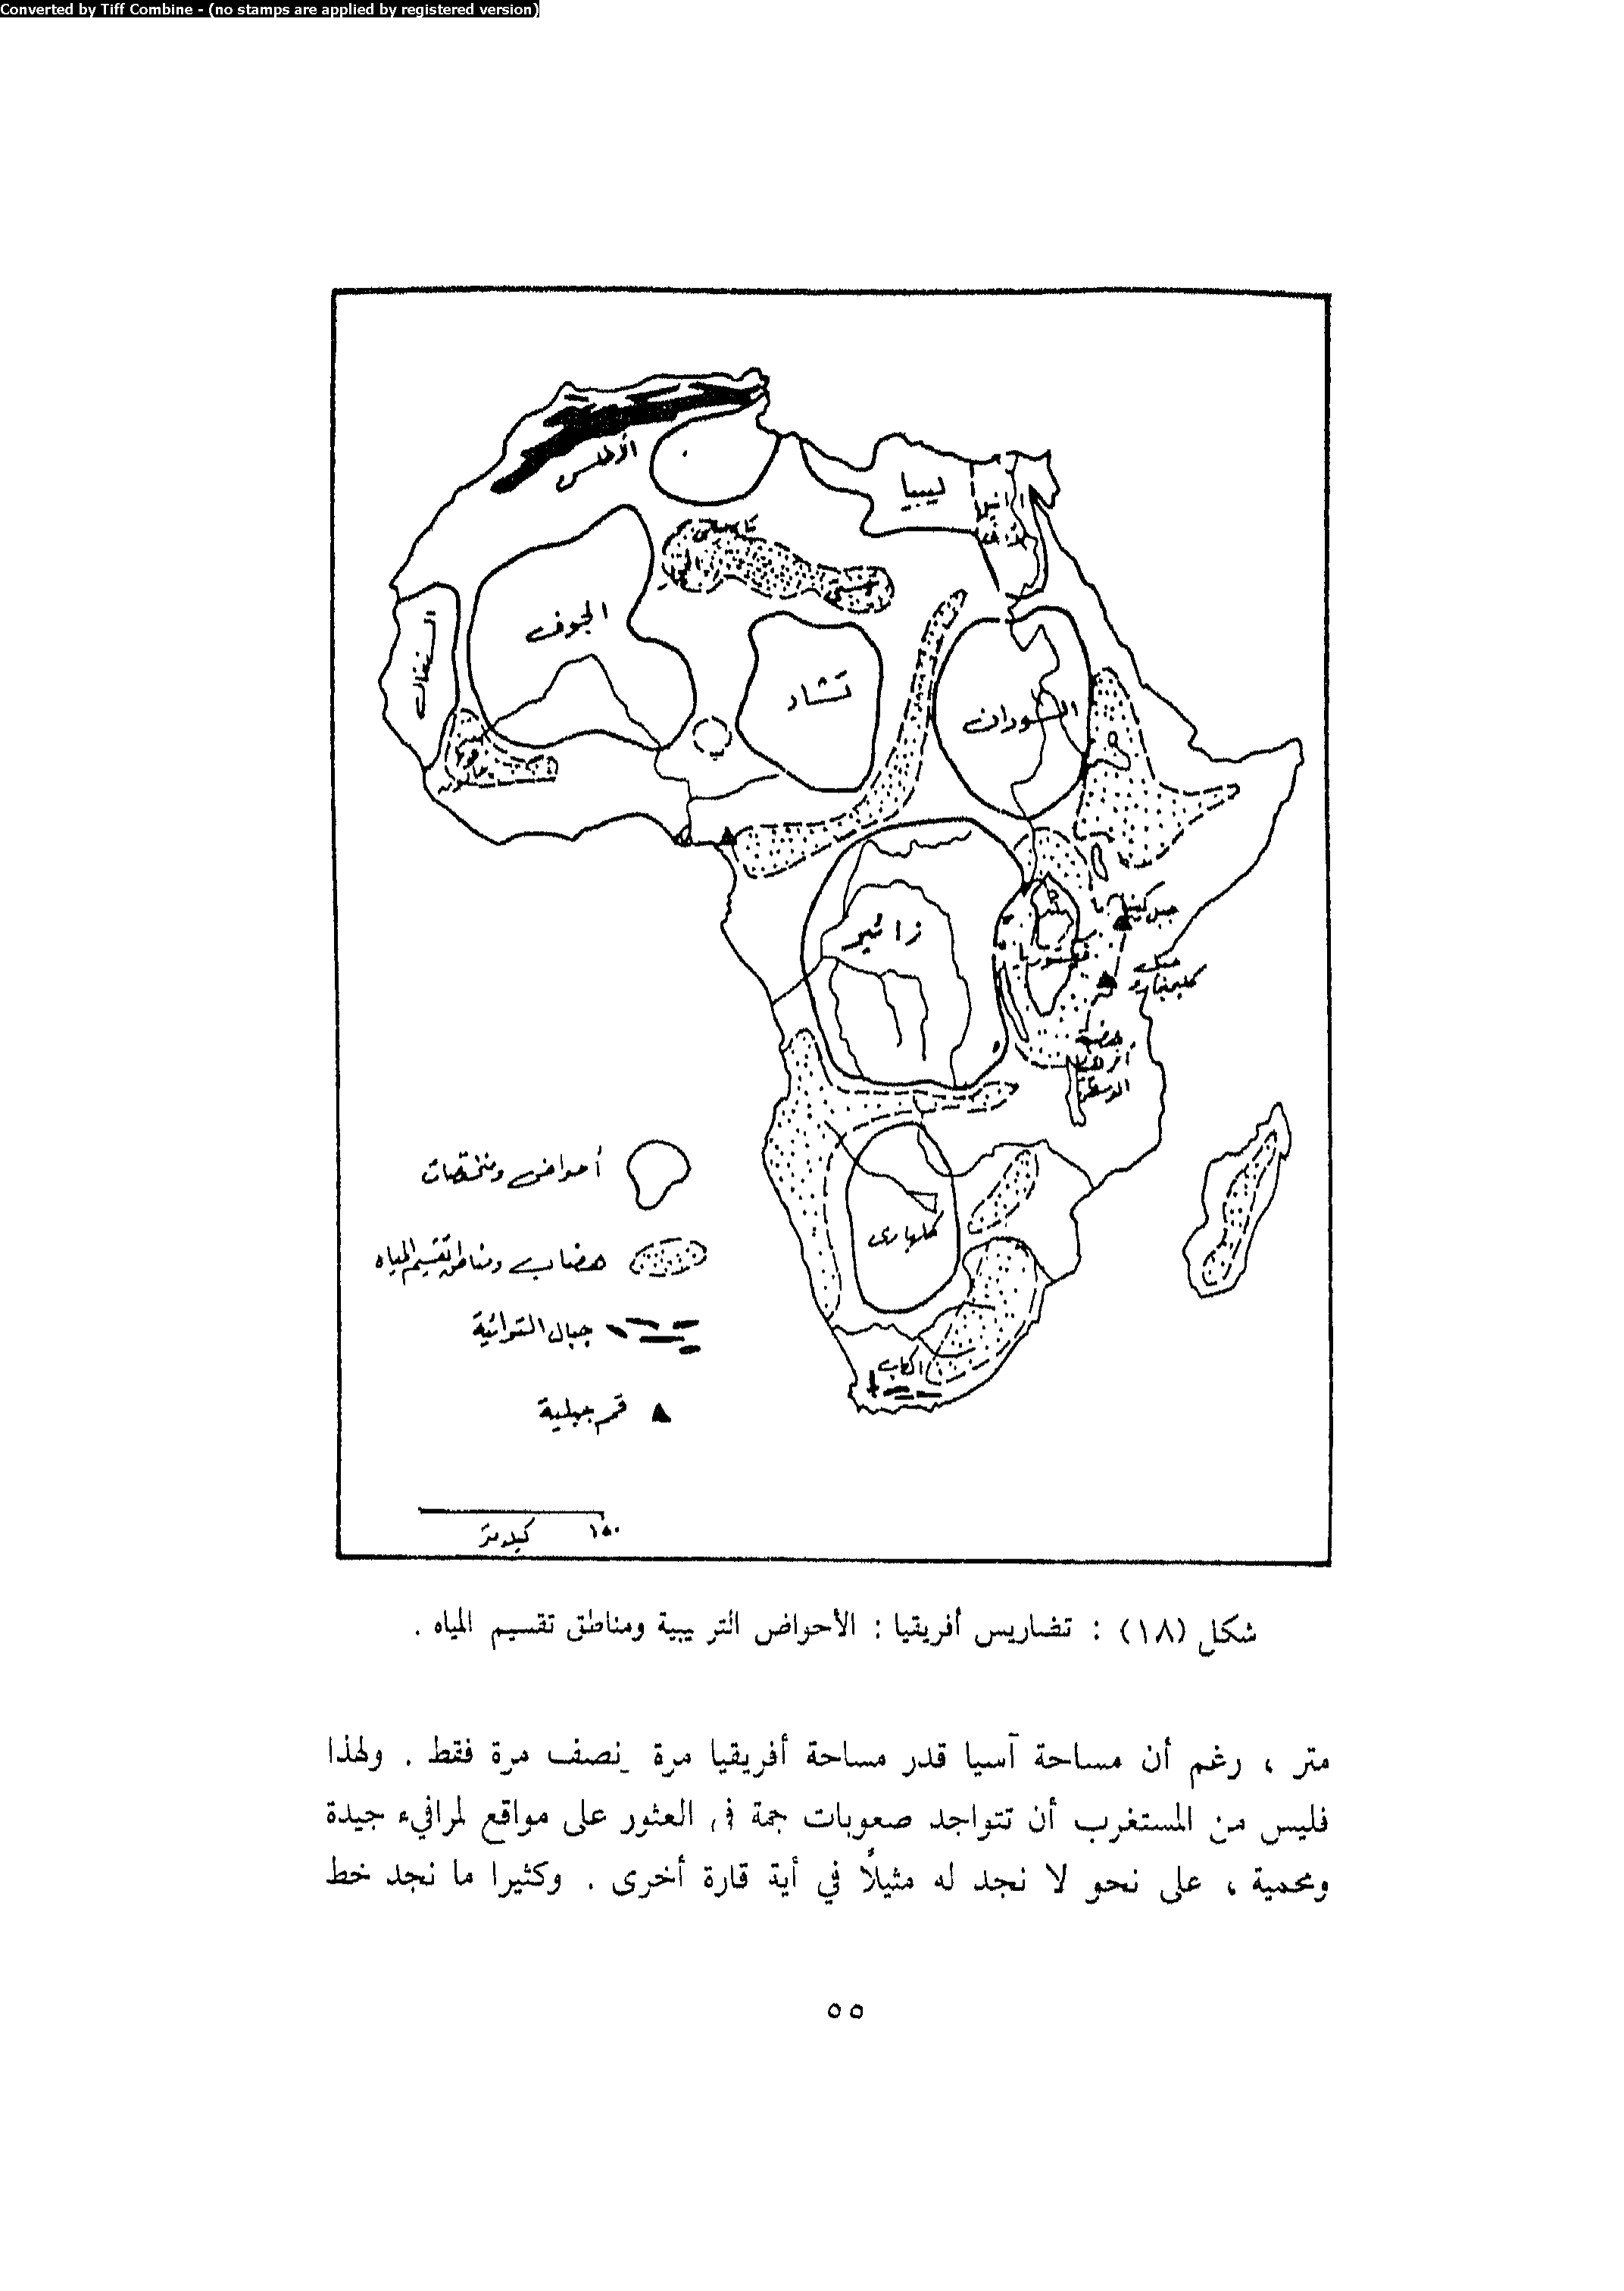 Converted by Tiff Combine - (no stamps are applied by registered version)
الأطلس
ليبيا
تاسيلى
تبستى
الجوف
السنغال
تشاد
السودان
زائير
جبل كينيا
جبل
كليمنجارو
هضبة
كلهارى
الكاب
أحواض ومنخفضات
هضاب ومناطق تقسيم المياه
جبال التوائية
قمم جبلية
كيلومتر
شكل (١٨) : تضاريس أفريقيا : الأحواض التر يبية ومناطق تقسيم المياه .
متر ، رغم أن مساحة آسيا قدر مساحة أفريقيا مرة نصف مرة فقط . ولهذا
فليس من المستغرب أن تتواجد صعوبات جمة فى العثور على مواقع لمرافيء جيدة
ومحمية ، على نحو لا نجد له مثيلاً في أية قارة أخرى . وكثيرا ما نجد خط
٥٥